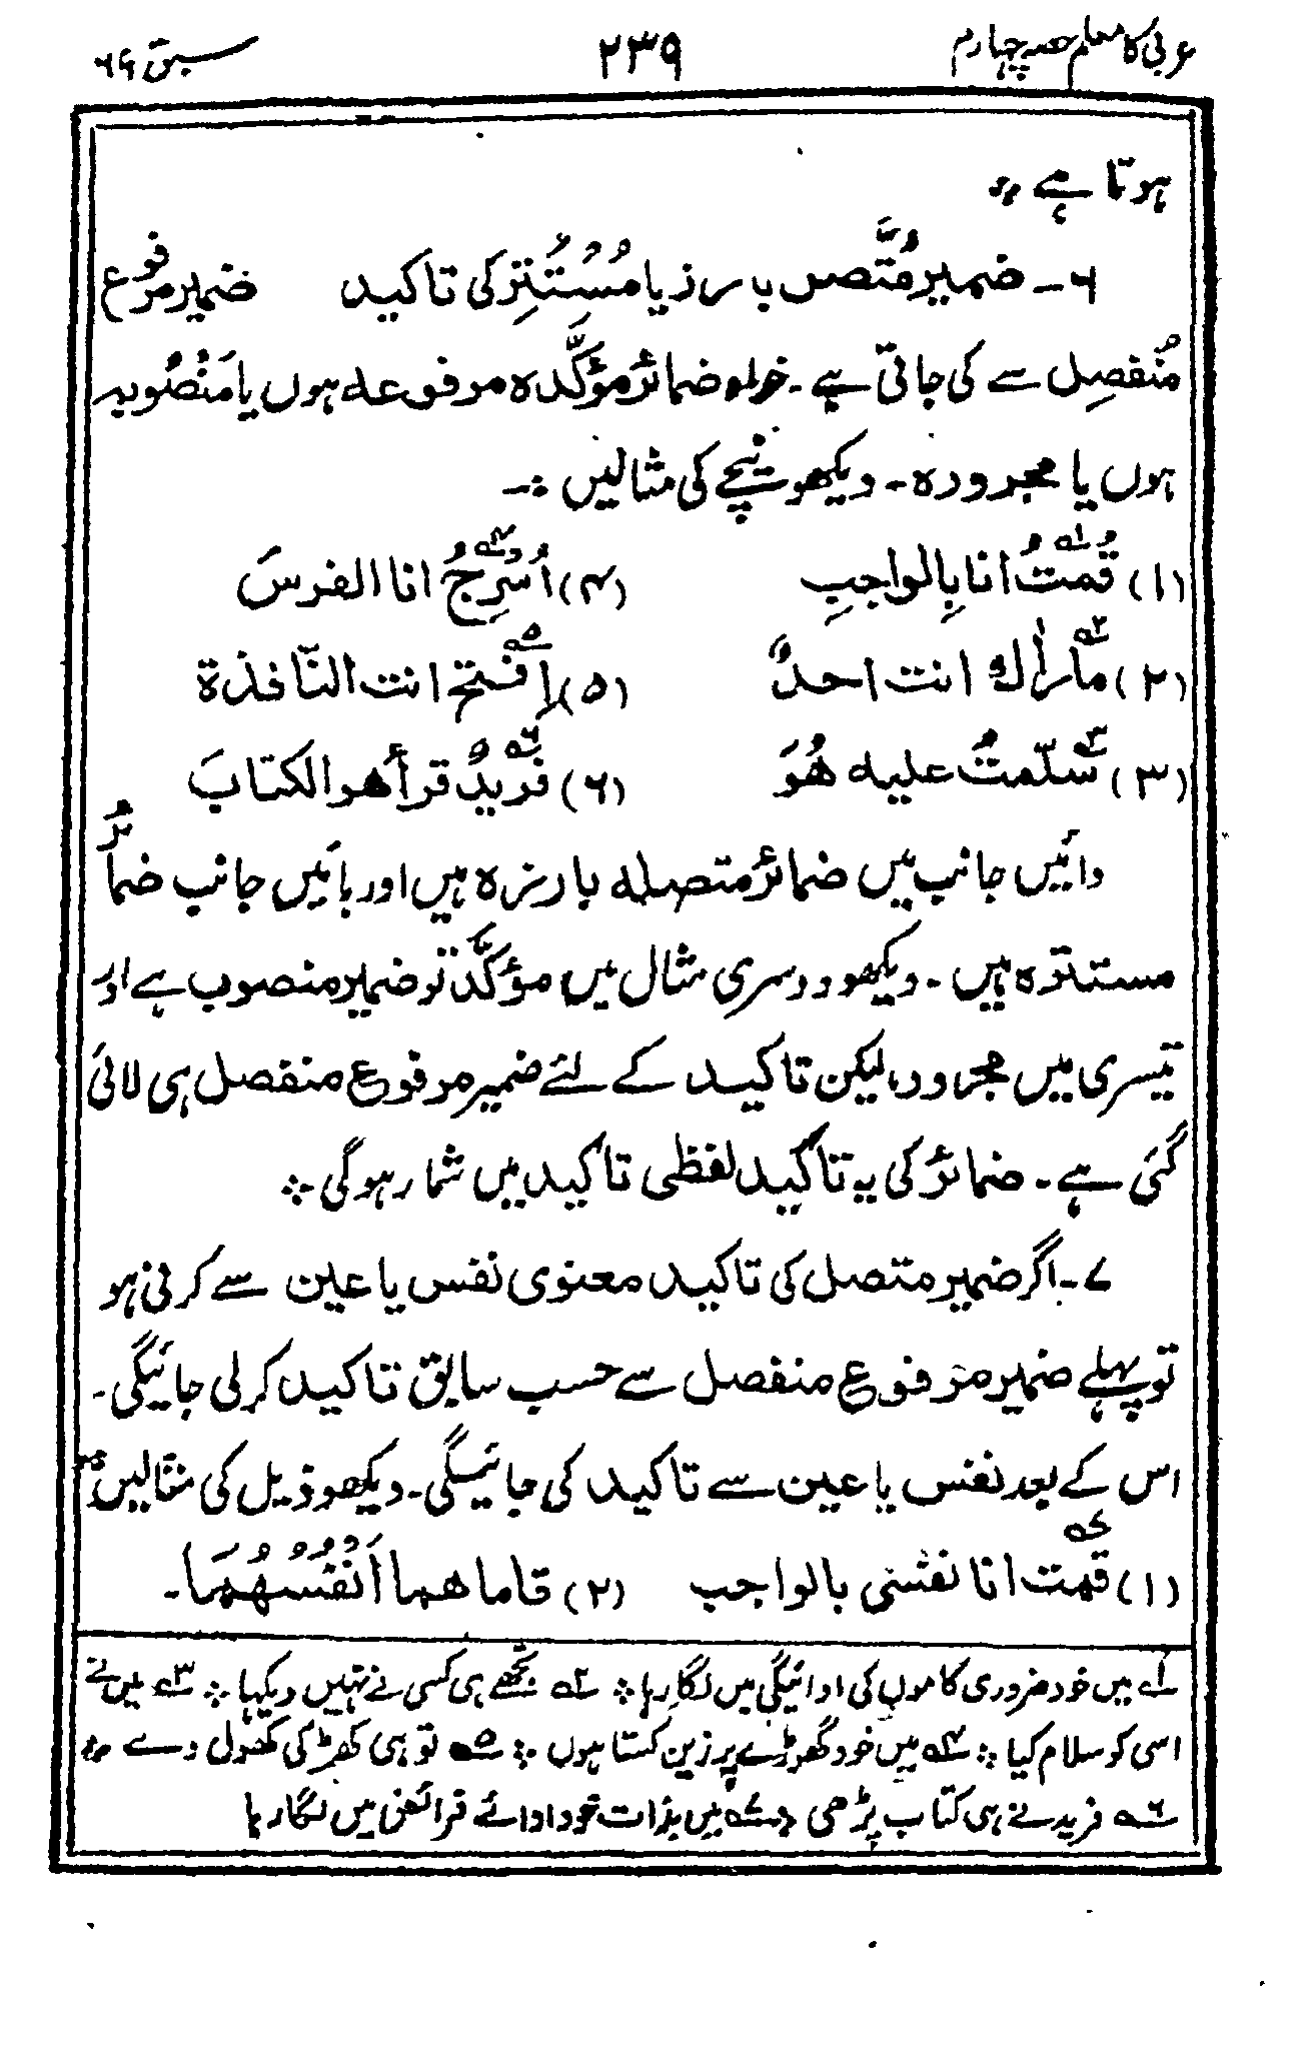 عربی کا معلم حصہ چہارم ۲۳۹ سبق ۶۶
ہوتا ہے ٭
۶ ـ ضمیر مُتَّصل بارز یا مُسْتَتِر کی تاکید ضمیر مرفوع
مُنفصِل سے کی جاتی ہے ۔ خواہ ضمائر مؤکَّدہ مرفوعہ ہوں یا مَنْصُوبہ
ہوں یا مجرورہ ۔ دیکھو نیچے کی مثالیں :-
(۱) قُمتُ انا بِالواجبِ (۴) اُسْرِجُ انا الفرسَ
(۲) ما رأٰك انت احدٌ (۵) اِفتح انت النّافذة
(۳) سلّمتُ عليه هُوَ (۶) فريدٌ قرأ هو الكتابَ
دائیں جانب میں ضمائر متصلہ بارزہ ہیں اور بائیں جانب ضمائر
مستترہ ہیں ۔ دیکھو دوسری مثال میں مؤکَّد تو ضمیر منصوب ہے اور
تیسری میں مجرور، لیکن تاکید کے لئے ضمیر مرفوع منفصل ہی لائی
گئی ہے ۔ ضمائر کی یہ تاکید لفظی تاکید میں شمار ہوگی ٭
۷ ـ اگر ضمیر متصل کی تاکید معنوی نفس یا عین سے کرنی ہو
تو پہلے ضمیر مرفوع منفصل سے حسب سابق تاکید کرلی جائیگی ۔
اس کے بعد نفس یا عین سے تاکید کی جائیگی ۔ دیکھو ذیل کی مثالیں
(۱) قمت انا نفسی بالواجب (۲) قاما هما اَنْفُسُهُمَا ۔
۱؎ میں خود ضروری کاموں کی ادائیگی میں لگا رہا ٭ ۲؎ تجھے ہی کسی نے نہیں دیکھا ٭ ۳؎ میں نے
اسی کو سلام کیا ٭ ۴؎ میں خود گھوڑے پر زین کستا ہوں ٭ ۵؎ تو ہی کھڑکی کھول دے ٭
۶؎ فرید نے ہی کتاب پڑھی ٭ ۷؎ میں بذات خود ادائے فرائض میں لگا رہا